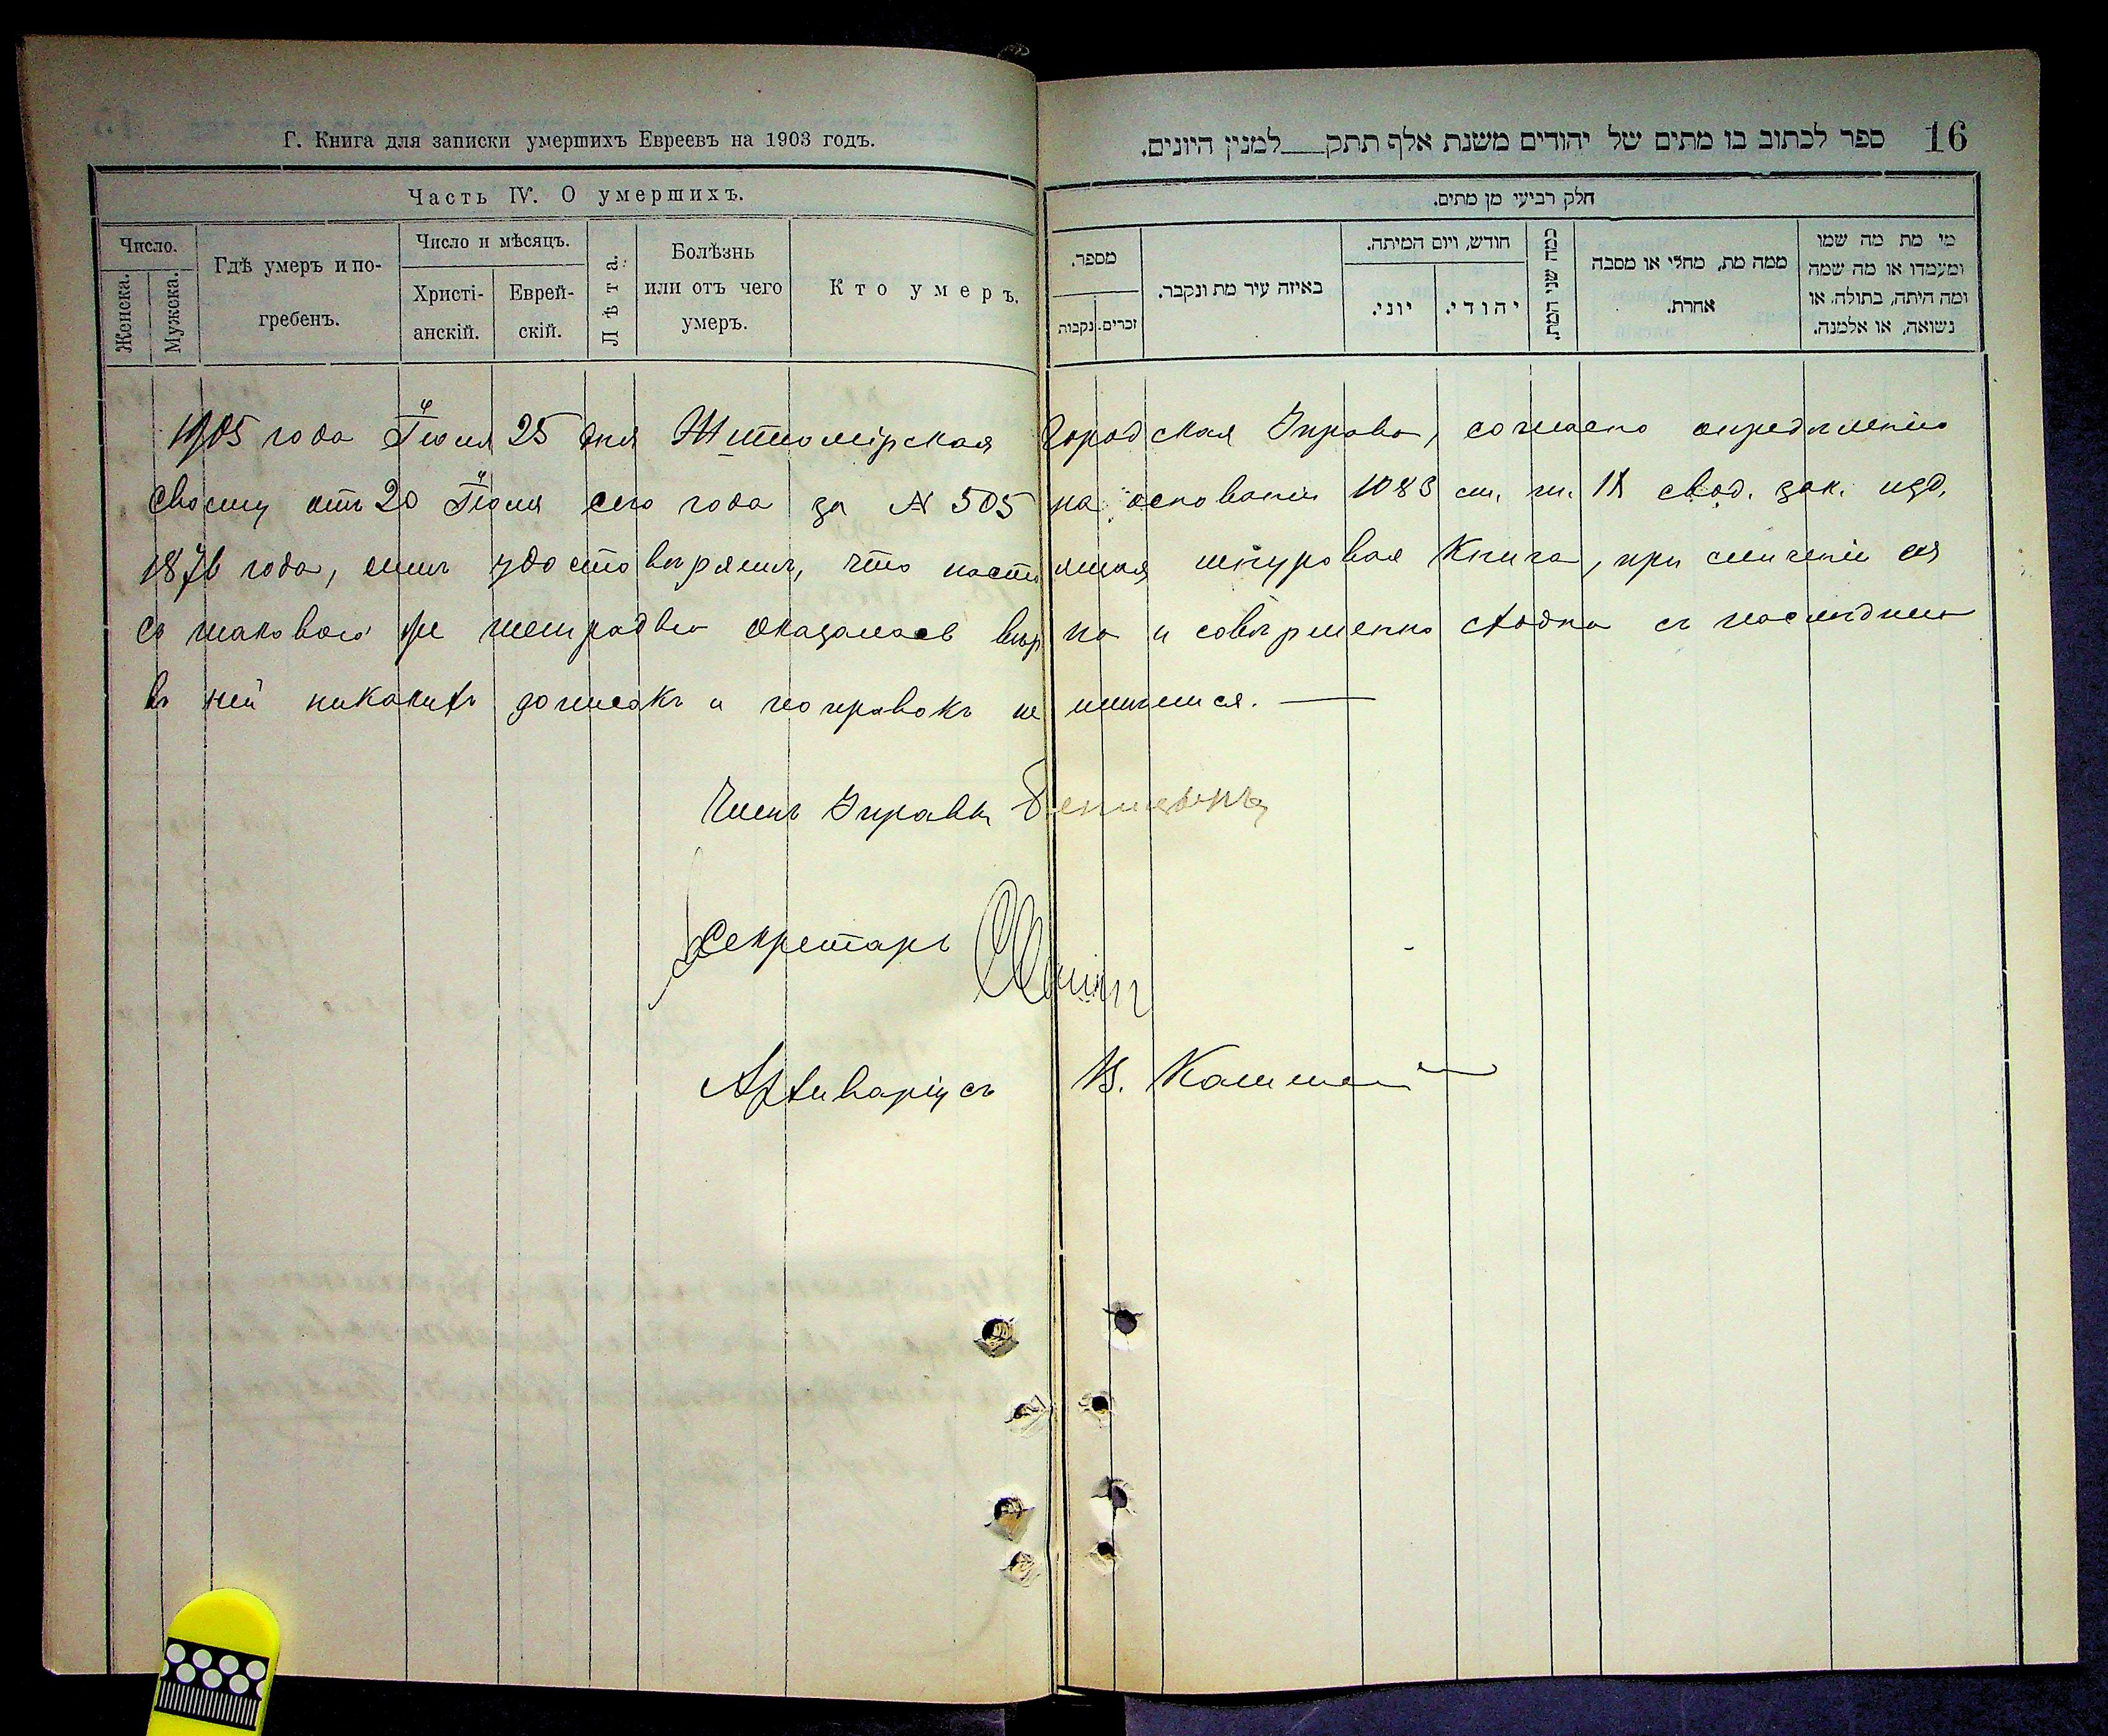 Г. Книга для записки умершихъ Евреевъ на 1903 годъ.
Часть IV. О умершихъ.
Число.
Женска.
Мужска.
Гдѣ умеръ и по-
гребенъ.
Число и мѣсяцъ.
Христі-
анскій.
Еврей-
скій.
Лѣта.
Болѣзнь
или отъ чего
умеръ.
Кто умеръ.
16
ספר לכתוב בו מתים של יהודים משנת אלף תתק___למנין היונים.
חלק רביעי מן מתים.
מספר.
זכרים.
נקבות
באיזה עיר מת ונקבר.
חודש, ויום המיתה.
יוני.
יהודי.
כמה שני המת.
ממה מת, מחלי או מסבה
אחרת.
מי מת מה שמו
ומעמדו או מה שמה
ומה היתה, בתולה, או
נשואה, או אלמנה.
1905 года Іюля 25 дня Житомірская Городская Управа, согласно опредѣленію
своему отъ 20 Іюля сего года за № 505 на основаніи 1083 ст. т. IX свод. зак. изд.
1876 года, симъ удостовѣряетъ, что настоящая шнуровая Книга, при сличеніи ея
съ таковою же тетрадью оказалась вѣрна и совершенно сходна съ послѣднею
въ ней никакихъ дописокъ и поправокъ не имѣется.
Членъ Управы
Секретарь
Архиваріусъ В.